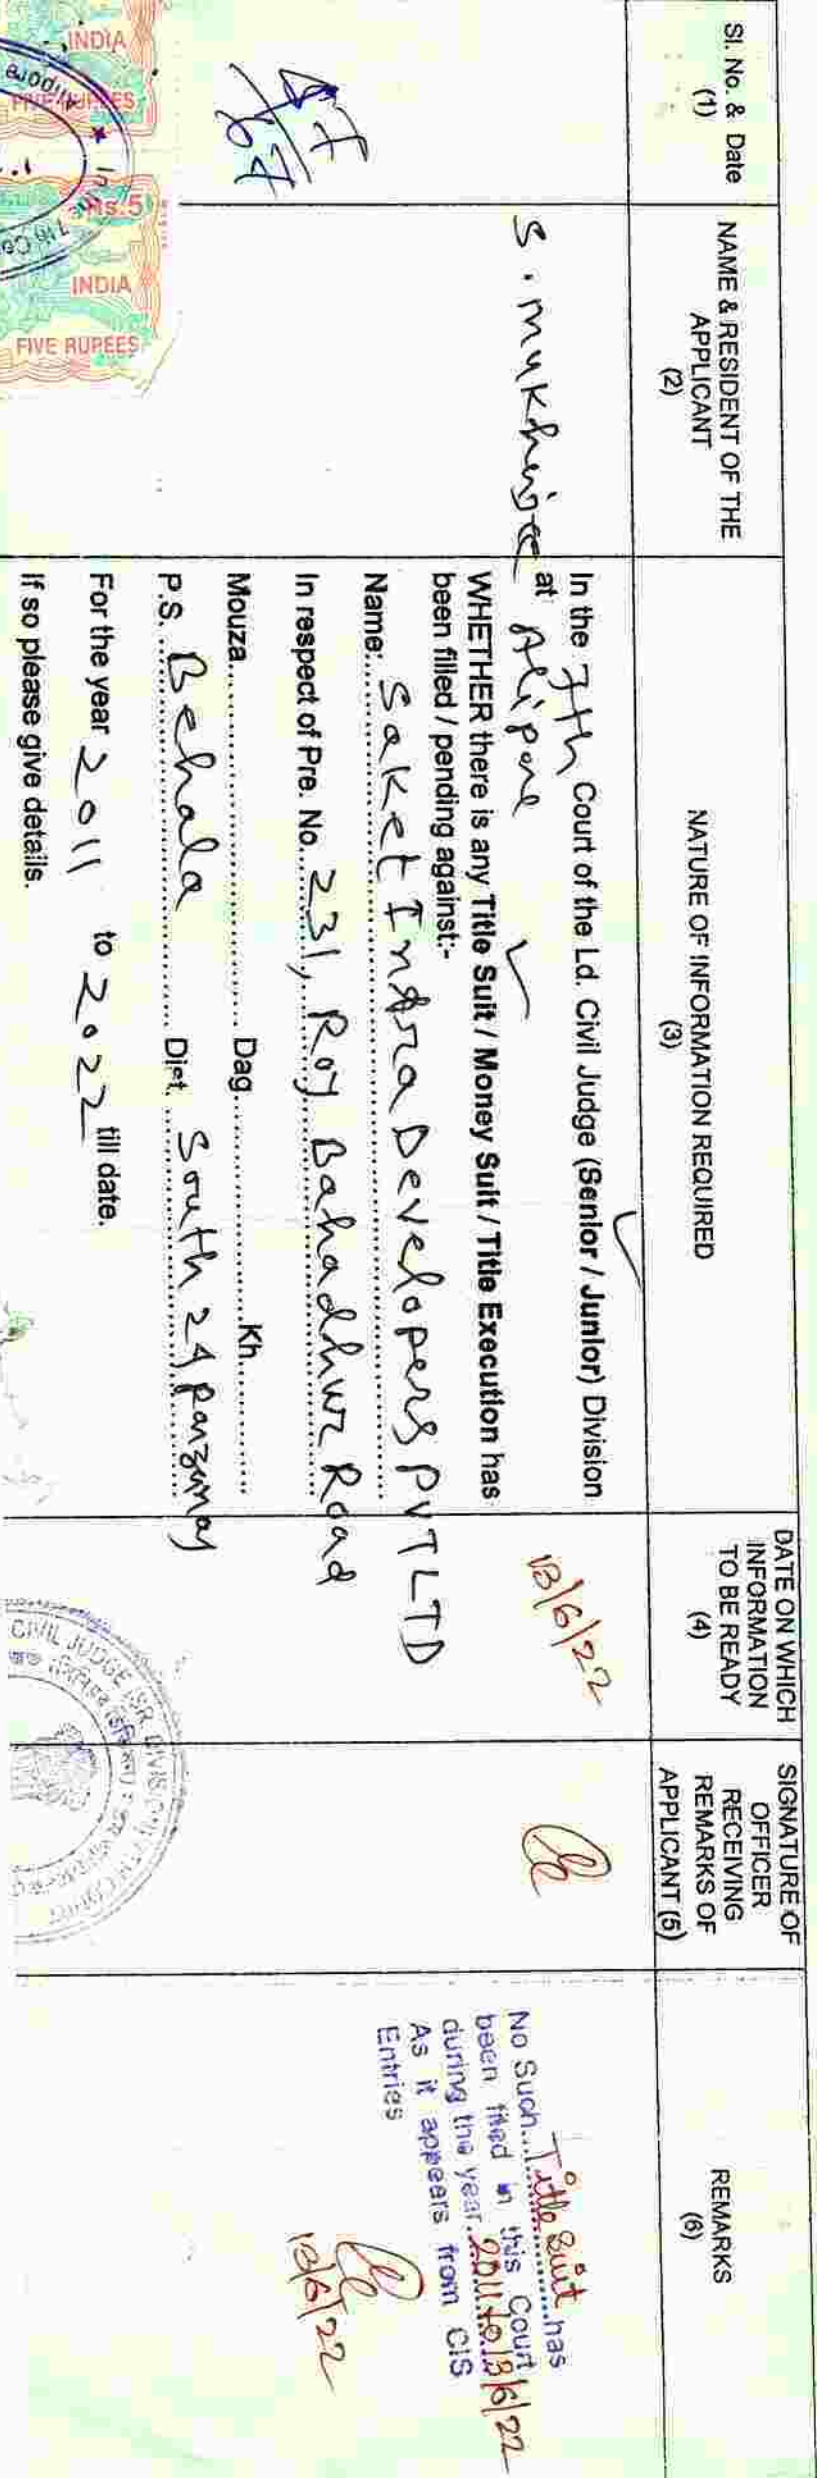 Sl. No. & Date
(1)
NAME & RESIDENT OF THE
APPLICANT
(2)
NATURE OF INFORMATION REQUIRED
(3)
DATE ON WHICH
INFORMATION
TO BE READY
(4)
SIGNATURE OF
OFFICER
RECEIVING
REMARKS OF
APPLICANT (5)
REMARKS
(6)
67
S. Mukherjee
In the 7th Court of the Ld. Civil Judge (Senior / Junior) Division
at Alipore
WHETHER there is any Title Suit / Money Suit / Title Execution has
been filled / pending against:-
Name: Saket Indra Developers PVT LTD
In respect of Pre. No. 231, Roy Bahadhur Road
Mouza........ Dag........ Kh........
P.S. Behala Dist. South 24 
For the year 2011 to 2022 till date.
If so please give details.
13/6/22
No Such Title Suit has
been filed in this Court
during the year 2011 to 13/6/22
As it appears from CIS
Entries
13/6/22
INDIA
FIVE RUPEES
Rs.5
INDIA
FIVE RUPEES
Alipore
CIVIL JUDGE (SR. DIVISION)